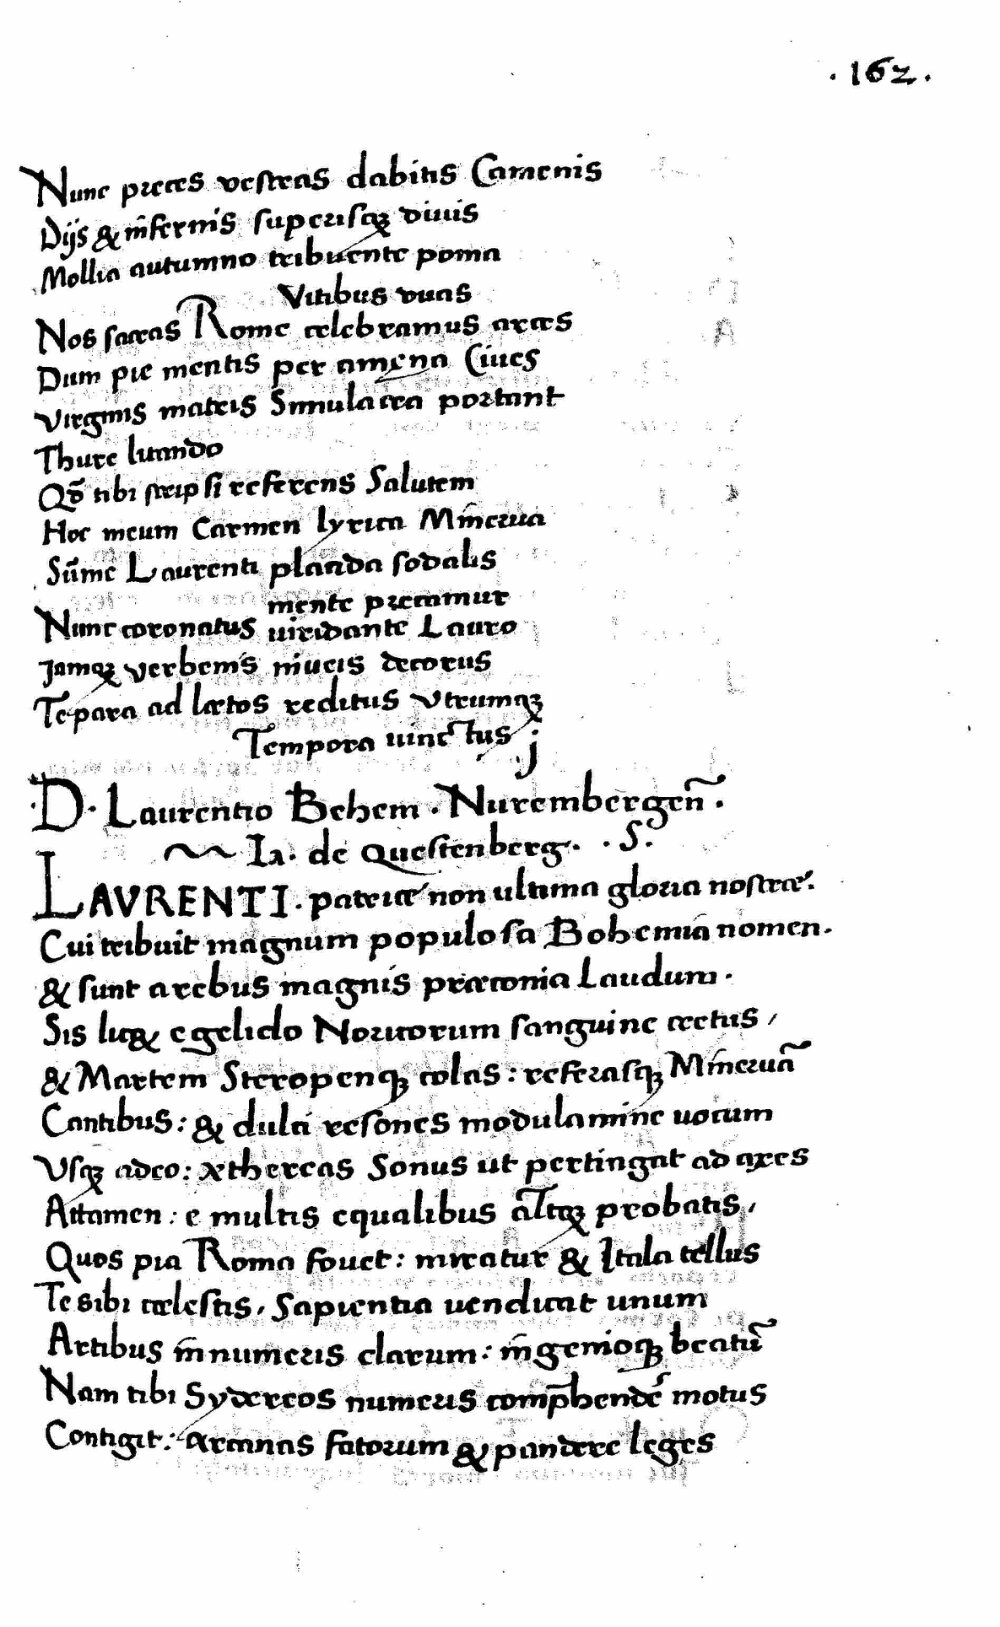 .162.
Nunc preces vestras dabitis Camenis
Dijs & īfernis superisqꝫ diuis
Mollia autumno tribuente poma
Vitibus vuas
Nos sacras Rome celebramus arces
Dum pie mentis per amena Ciues
Virginis matris Simulacra portant
Thure litando
Qd̄ tibi scripsi referens Salutem
Hoc meum Carmen lyrica Mīerua
Sūme Laurenti placida sodalis
mente precamur
Nunc coronatus uiridante Lauro
Jamqꝫ verbenis niueis decorus
Te para ad lætos reditus Utrumqꝫ
Tempora uinctus j
.D. Laurentio Behem . Nurembergen̄ .
Ia. de Questenberg. . S.
LAVRENTI . patriæ non ultima gloria nostræ.
Cui tribuit magnum populosa Bohemia nomen.
& sunt arcbus magnis præconia Laudum .
Sis licꝫ egelido Noricorum sanguine cretus ,
& Martem Steropenqꝫ colas : referasqꝫ Mīeruā
Cantibus : & dulci resones modulamine uocum
Vsqꝫ adeo : æthereas Sonus ut pertingat ad axes
Attamen : e multis equalibus altqꝫ probatis ,
Quos pia Roma fouet : miratur & Itala tellus
Te sibi cælestis , Sapientia uendicat unum
Artibus īnumeris clarum : īgenioqꝫ beatū
Nam tibi Sydereos numeris comp̄hendē motus
Contigit : arcanas fatorum & pandere leges